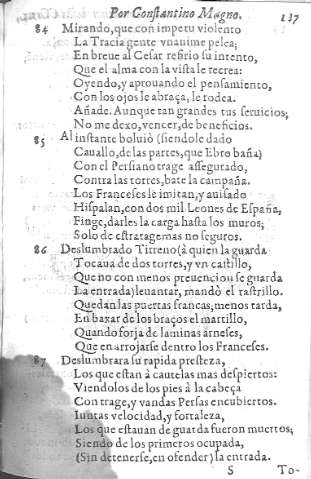 Por Constantino Magno. 137
84 Mirando, que con impetu violento
La Tracia gente vnanime pelea;
En breue al Cesar refirio su intento,
Que el alma con la vista le recrea:
Oyendo, y aprouando el pensamiento,
Con los ojos le abraça, le rodea.
Añade. Aunque tan grandes tus seruicios;
No me dexo, vencer, de beneficios.
85 Al instante boluiò (siendole dado
Cauallo, de las partes, que Ebro baña)
Con el Persiano trage assegurado,
Contra las torres, bate la campaña.
Los Franceses le imitan, y auisado
Hispalan, con dos mil Leones de España,
Finge, darles la carga hasta los muros;
Solo de estratagemas no seguros.
86 Deslumbrado Tirreno (à quien la guarda
Tocaua de dos torres, y vn castillo,
Que no con menos preuencion se guarda
La entrada) leuantar, mandò el rastrillo.
Quedan las puertas francas; menos tarda,
En baxar de los braços el martillo,
Quando forja de laminas arneses,
Que en arrojarse dentro los Franceses.
87 Deslumbrara su rapida presteza,
Los que estàn à cautelas mas despiertos:
Viendolos de los pies à la cabeçà
Con trage, y vandas Persas encubiertos.
Iuntas velocidad, y fortaleza,
Los que estauan de guarda fueron muertos;
Siendo de los primeros ocupada,
(Sin detenerse, en ofender) la entrada.
S To-